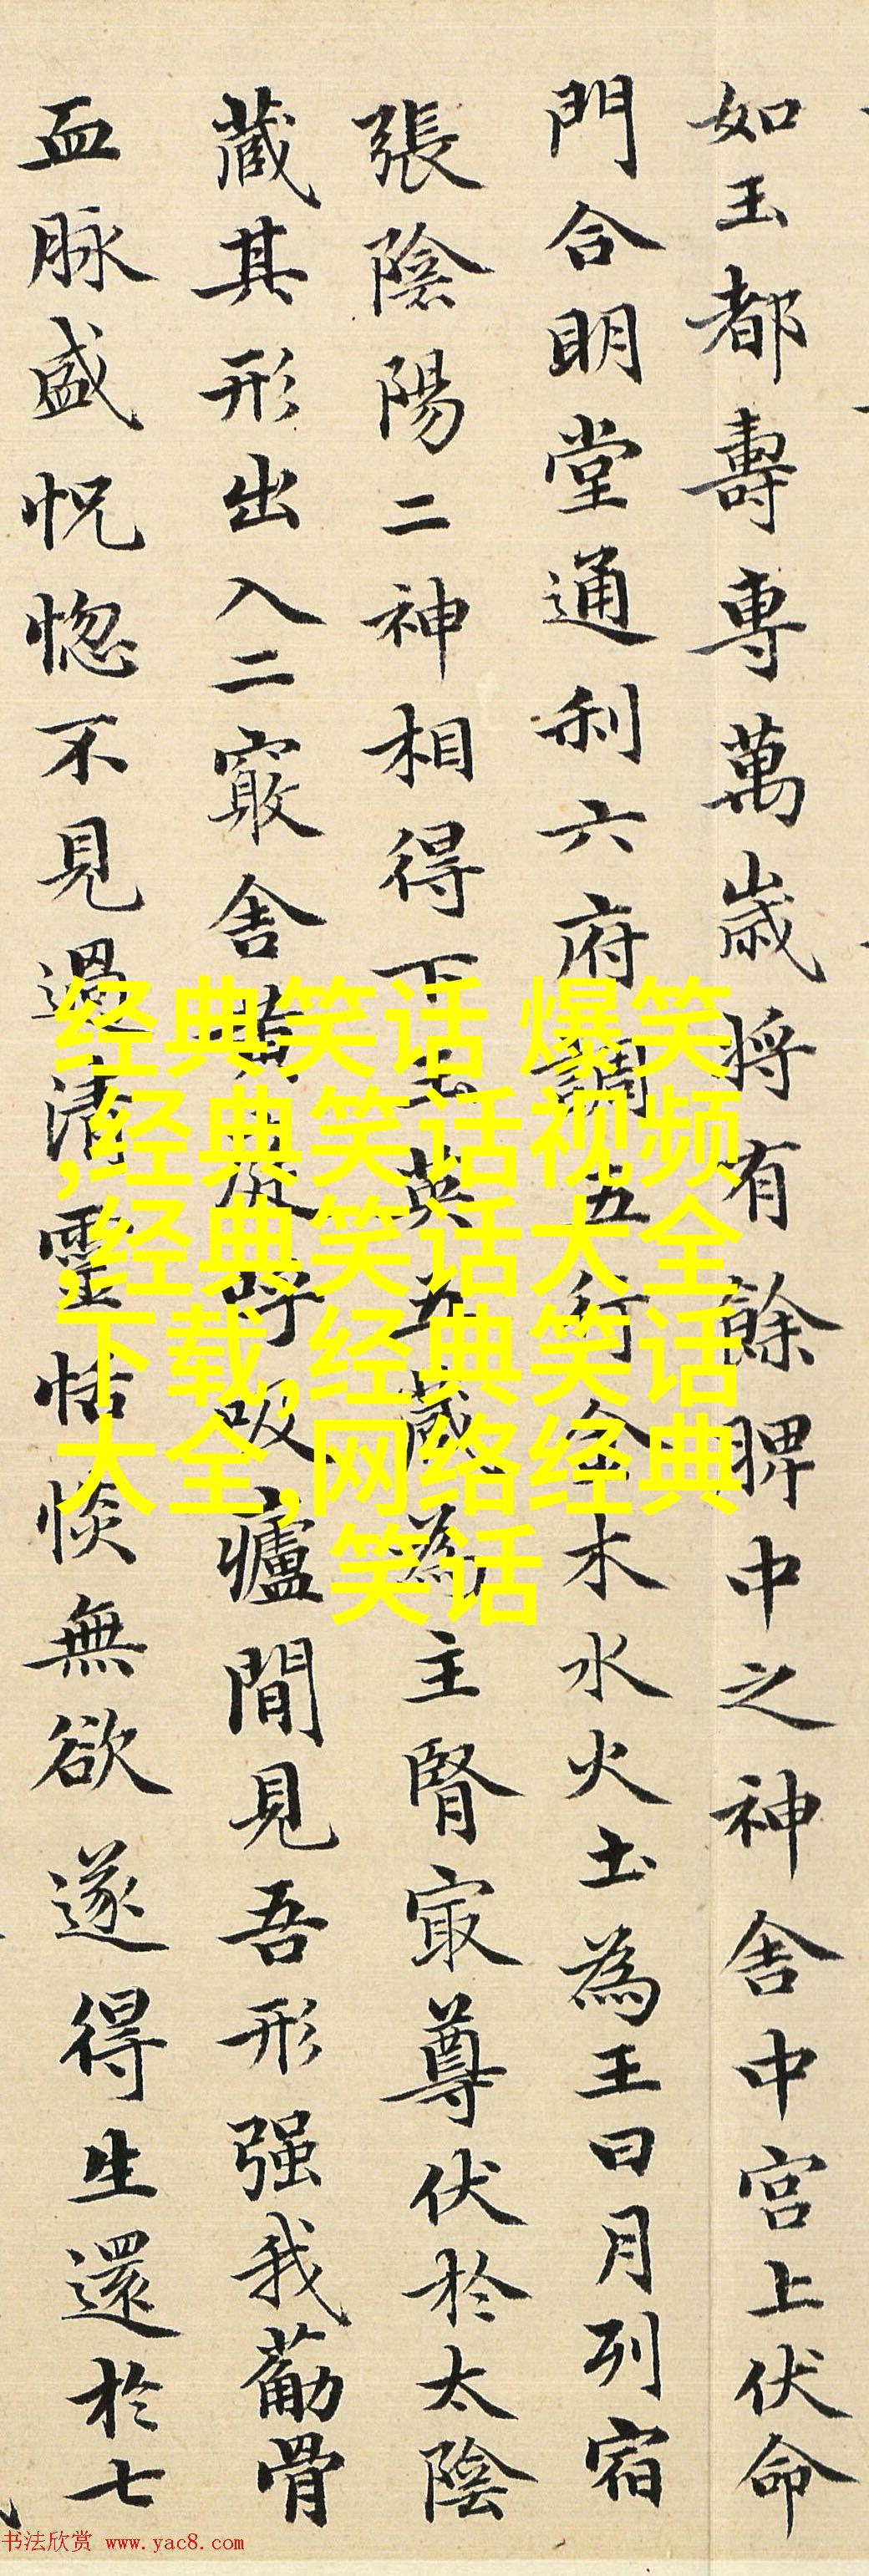 如玉都壽專萬歲將有餘脾中之神舍中宮上伏命
門合明堂通利六府調五行金木水火土為王日月列宿
張陰陽二神相得下玉英五藏為主腎寂尊伏於太陰
藏其形出入二竅舍黃庭呼吸廬間見吾形强我葍骨
血脉盛怳惚不見過清靈恬惔無欲遂得生還於七
经典笑话 爆笑
,经典笑话视频
,经典笑话大全
下载,经典笑话
大全,网络经典
笑话
书法欣赏 www.yac8.com